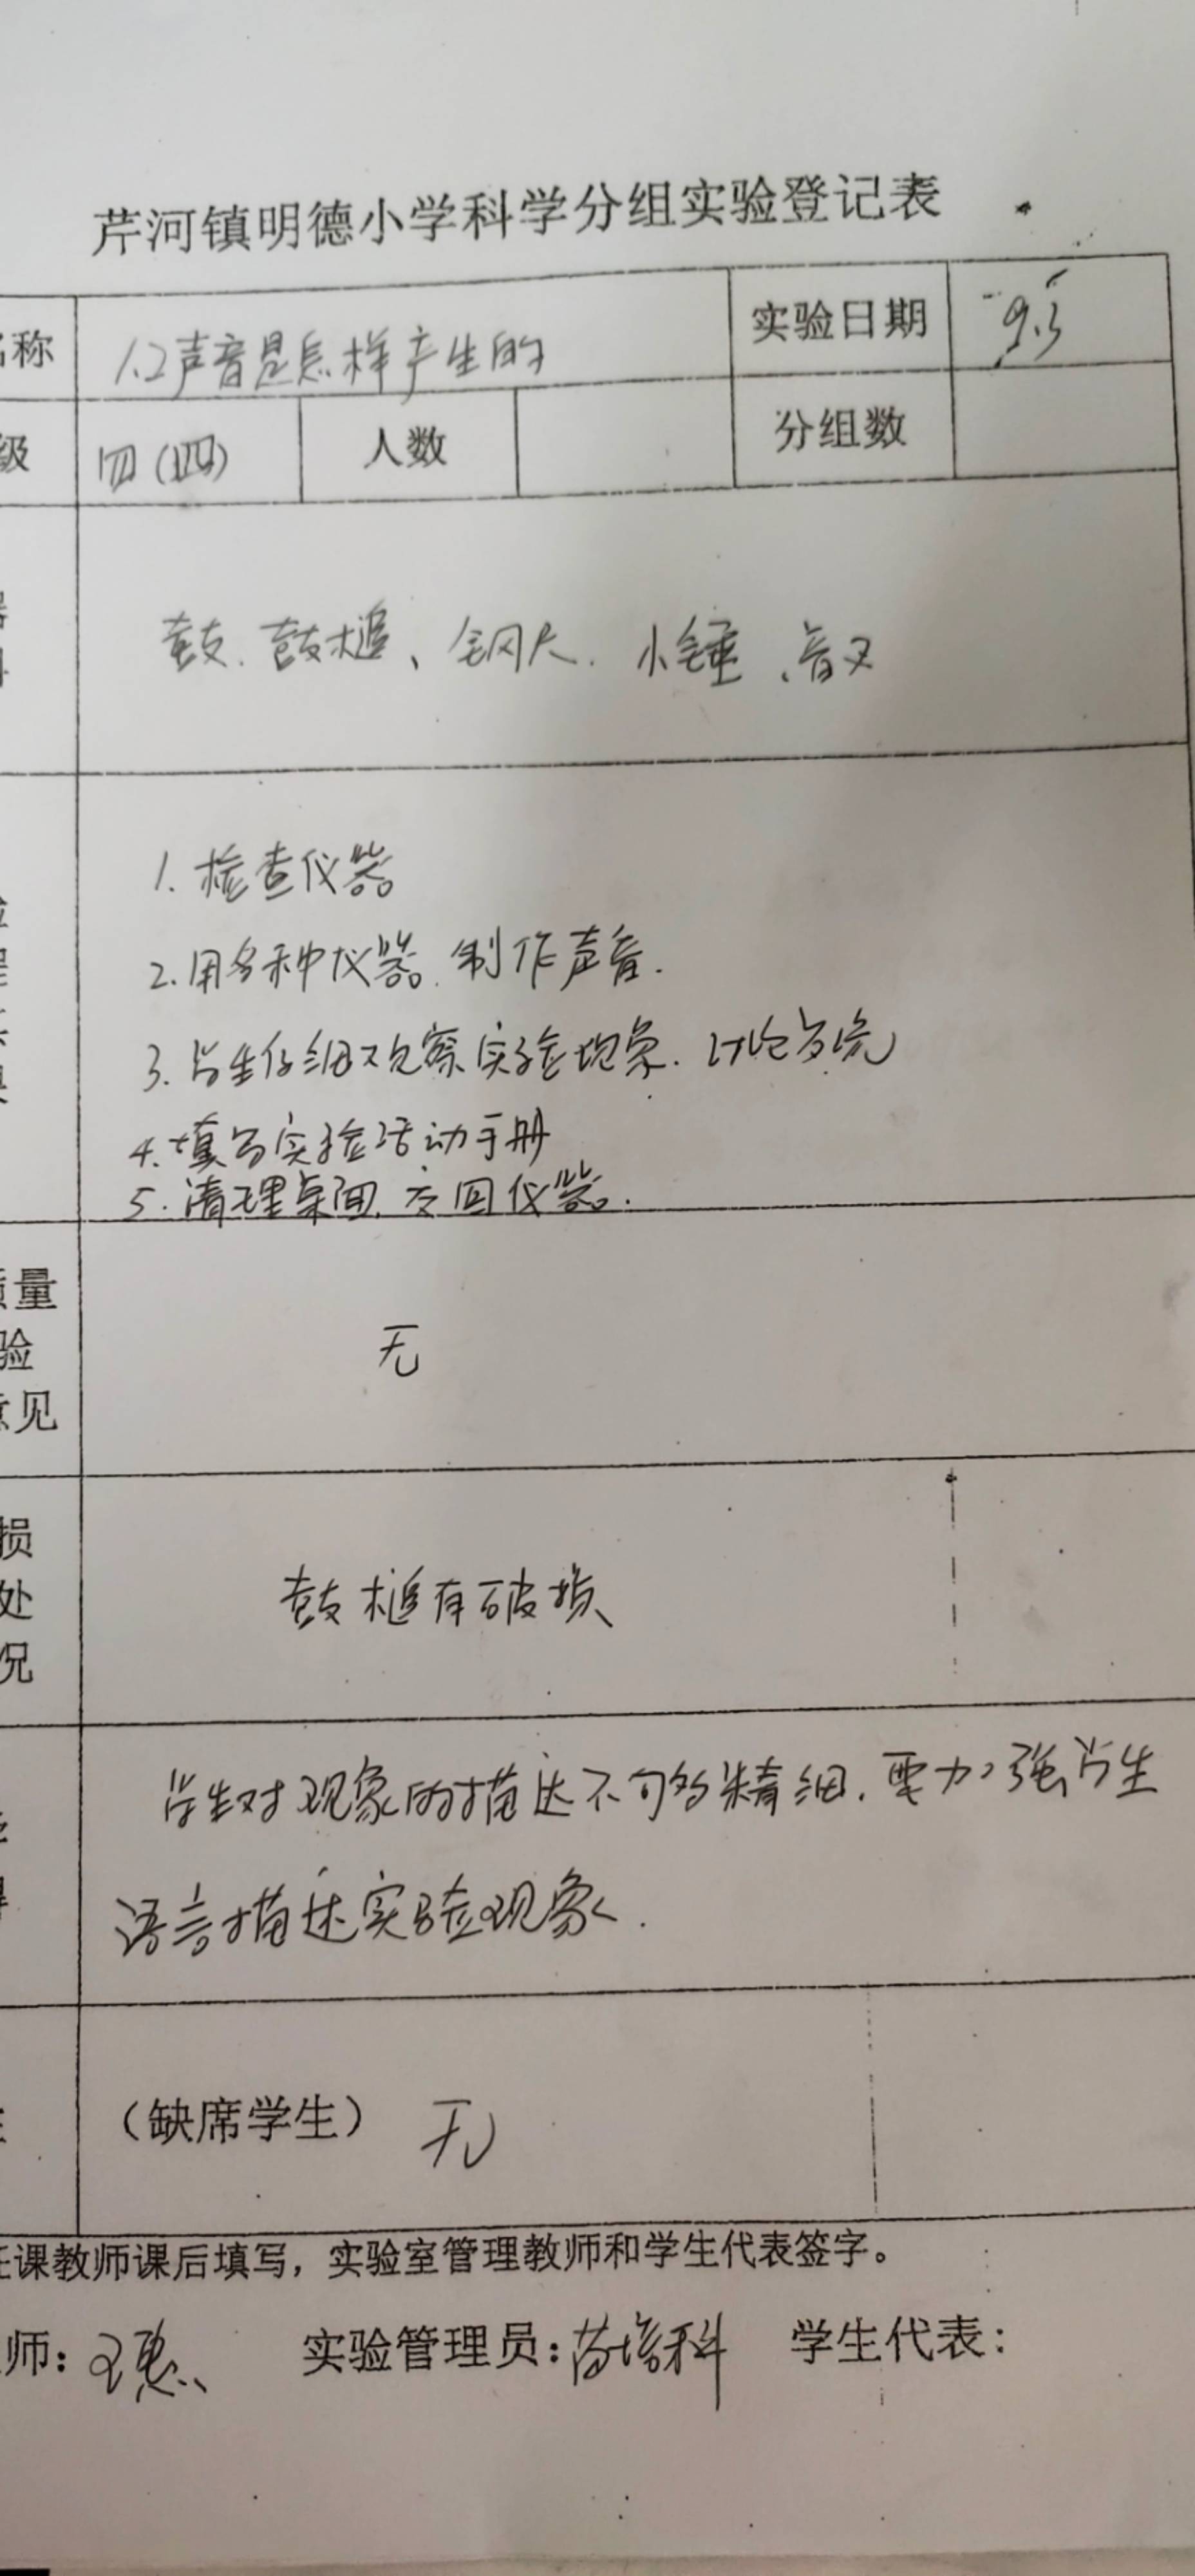 芹河镇明德小学科学分组实验登记表
名称 1.2声音是怎样产生的 实验日期 9.3
级 四(四) 人数 分组数
鼓、鼓槌、钢尺、小锤、音叉
1. 检查仪器
2. 用各种仪器,制作声音.
3. 学生仔细观察实验现象.讨论与交流
4. 填写实验活动手册
5. 清理桌面,放回仪器.
质量
验
意见
无
损
处
况
鼓槌有破损
学生对现象的描述不够精细,要加强学生
语言描述实验现象.
(缺席学生) 无
任课教师课后填写,实验室管理教师和学生代表签字。
师: 王惠 实验管理员: 培科 学生代表: